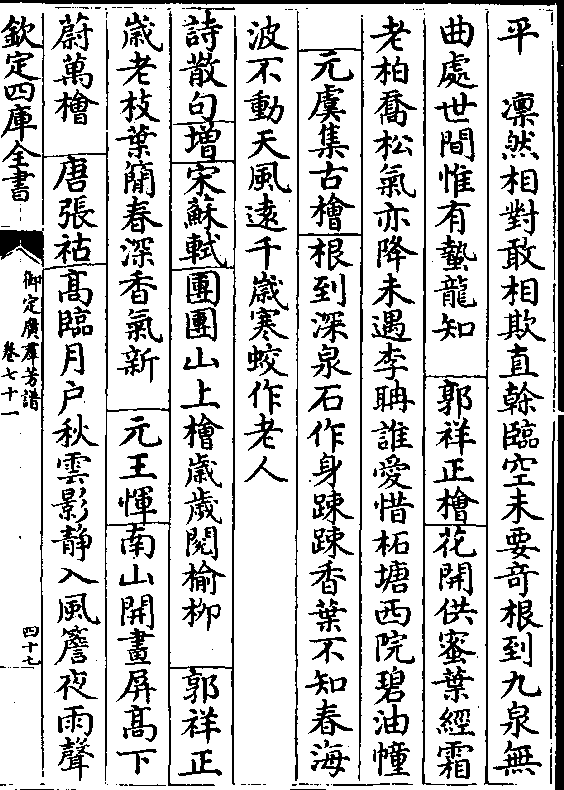 平　凛然相對敢相欺直榦臨空未要竒根到九泉無
曲處世間惟有蟄龍知　郭祥正檜花開供蜜葉經霜
老柏喬松氣亦降未遇李聃誰愛惜柘塘西院碧油幢
元虞集古檜根到深泉石作身踈踈香葉不知春海
波不動天風逺千歳寒蛟作老人
詩散句增宋蘇軾團團山上檜歳歳閱榆栁　郭祥正
歳老枝葉簡春深香氣新　元王惲南山開畫屏髙下
蔚萬檜　唐張祜髙臨月户秋雲影静入風簷夜雨聲
欽定四庫全書
御定廣羣芳譜
卷七十一
四十七